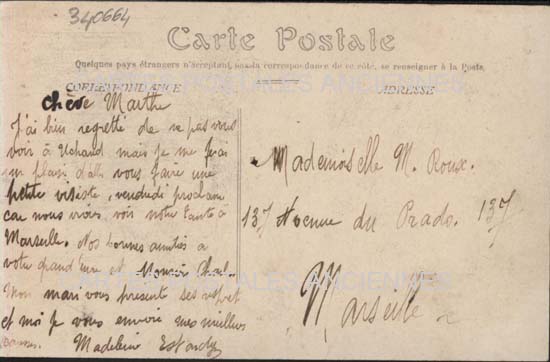 340664
Carte Postale
Quelques pays étrangers n'acceptant pas la correspondance de ce côté, se renseigner à la Poste
CORRESPONDANCE
ADRESSE
CARTES POSTALES ANCIENNES
Chère Marthe
J'ai bien regretté de ne pas vous
voir à Uchaud mais je me ferai
un plaisir d'aller vous faire une
petite visiste, vendredi prochain
car nous irons voir notre tante à
Marseille. Nos bonnes amitiés à
votre grand'mère et Monsieur
Mon mari vous present ses respet
et moi je vous envoie mes meilleurs
baisers. Madeleine
Mademoiselle M. Roux.
137 Avenue du Prado. 137
Marseille
CARTES POSTALES ANCIENNES